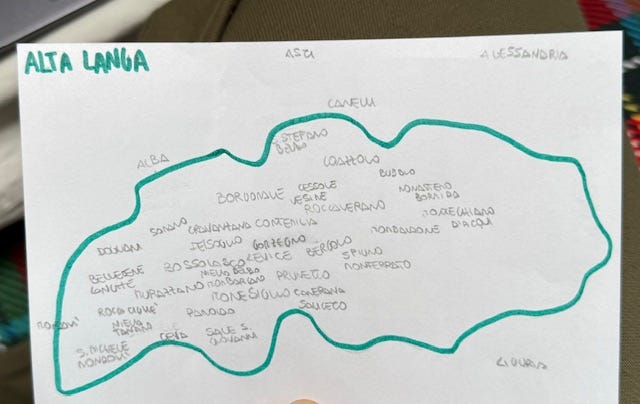 ALTA LANGA
ASTI
ALESSANDRIA
CANELLI
S. STEFANO
BELBO
ALBA
LOAZZOLO
BUBBIO
BORGOMALE
CESSOLE
VESIME
MONASTERO
BORMIDA
ROCCAVERANO
MONTECHIARO
D'ACQUI
SOMANO
CRAVANZANA
CORTEMILIA
MOMBALDONE
DOGLIANI
FEISOGLIO
GORZEGNO
BERGOLO
SPIGNO
MONFERRATO
BOSSOLASCO
LEVICE
BELVEDERE
LANGHE
MURAZZANO
MOMBARCARO
PRUNETTO
MONESIGLIO
CAMERANA
ROCCA CIGLIE'
PAROLDO
SALICETO
MONDOVI'
CEVA
SALE S.
GIOVANNI
S. MICHELE
MONDOVI'
LIGURIA